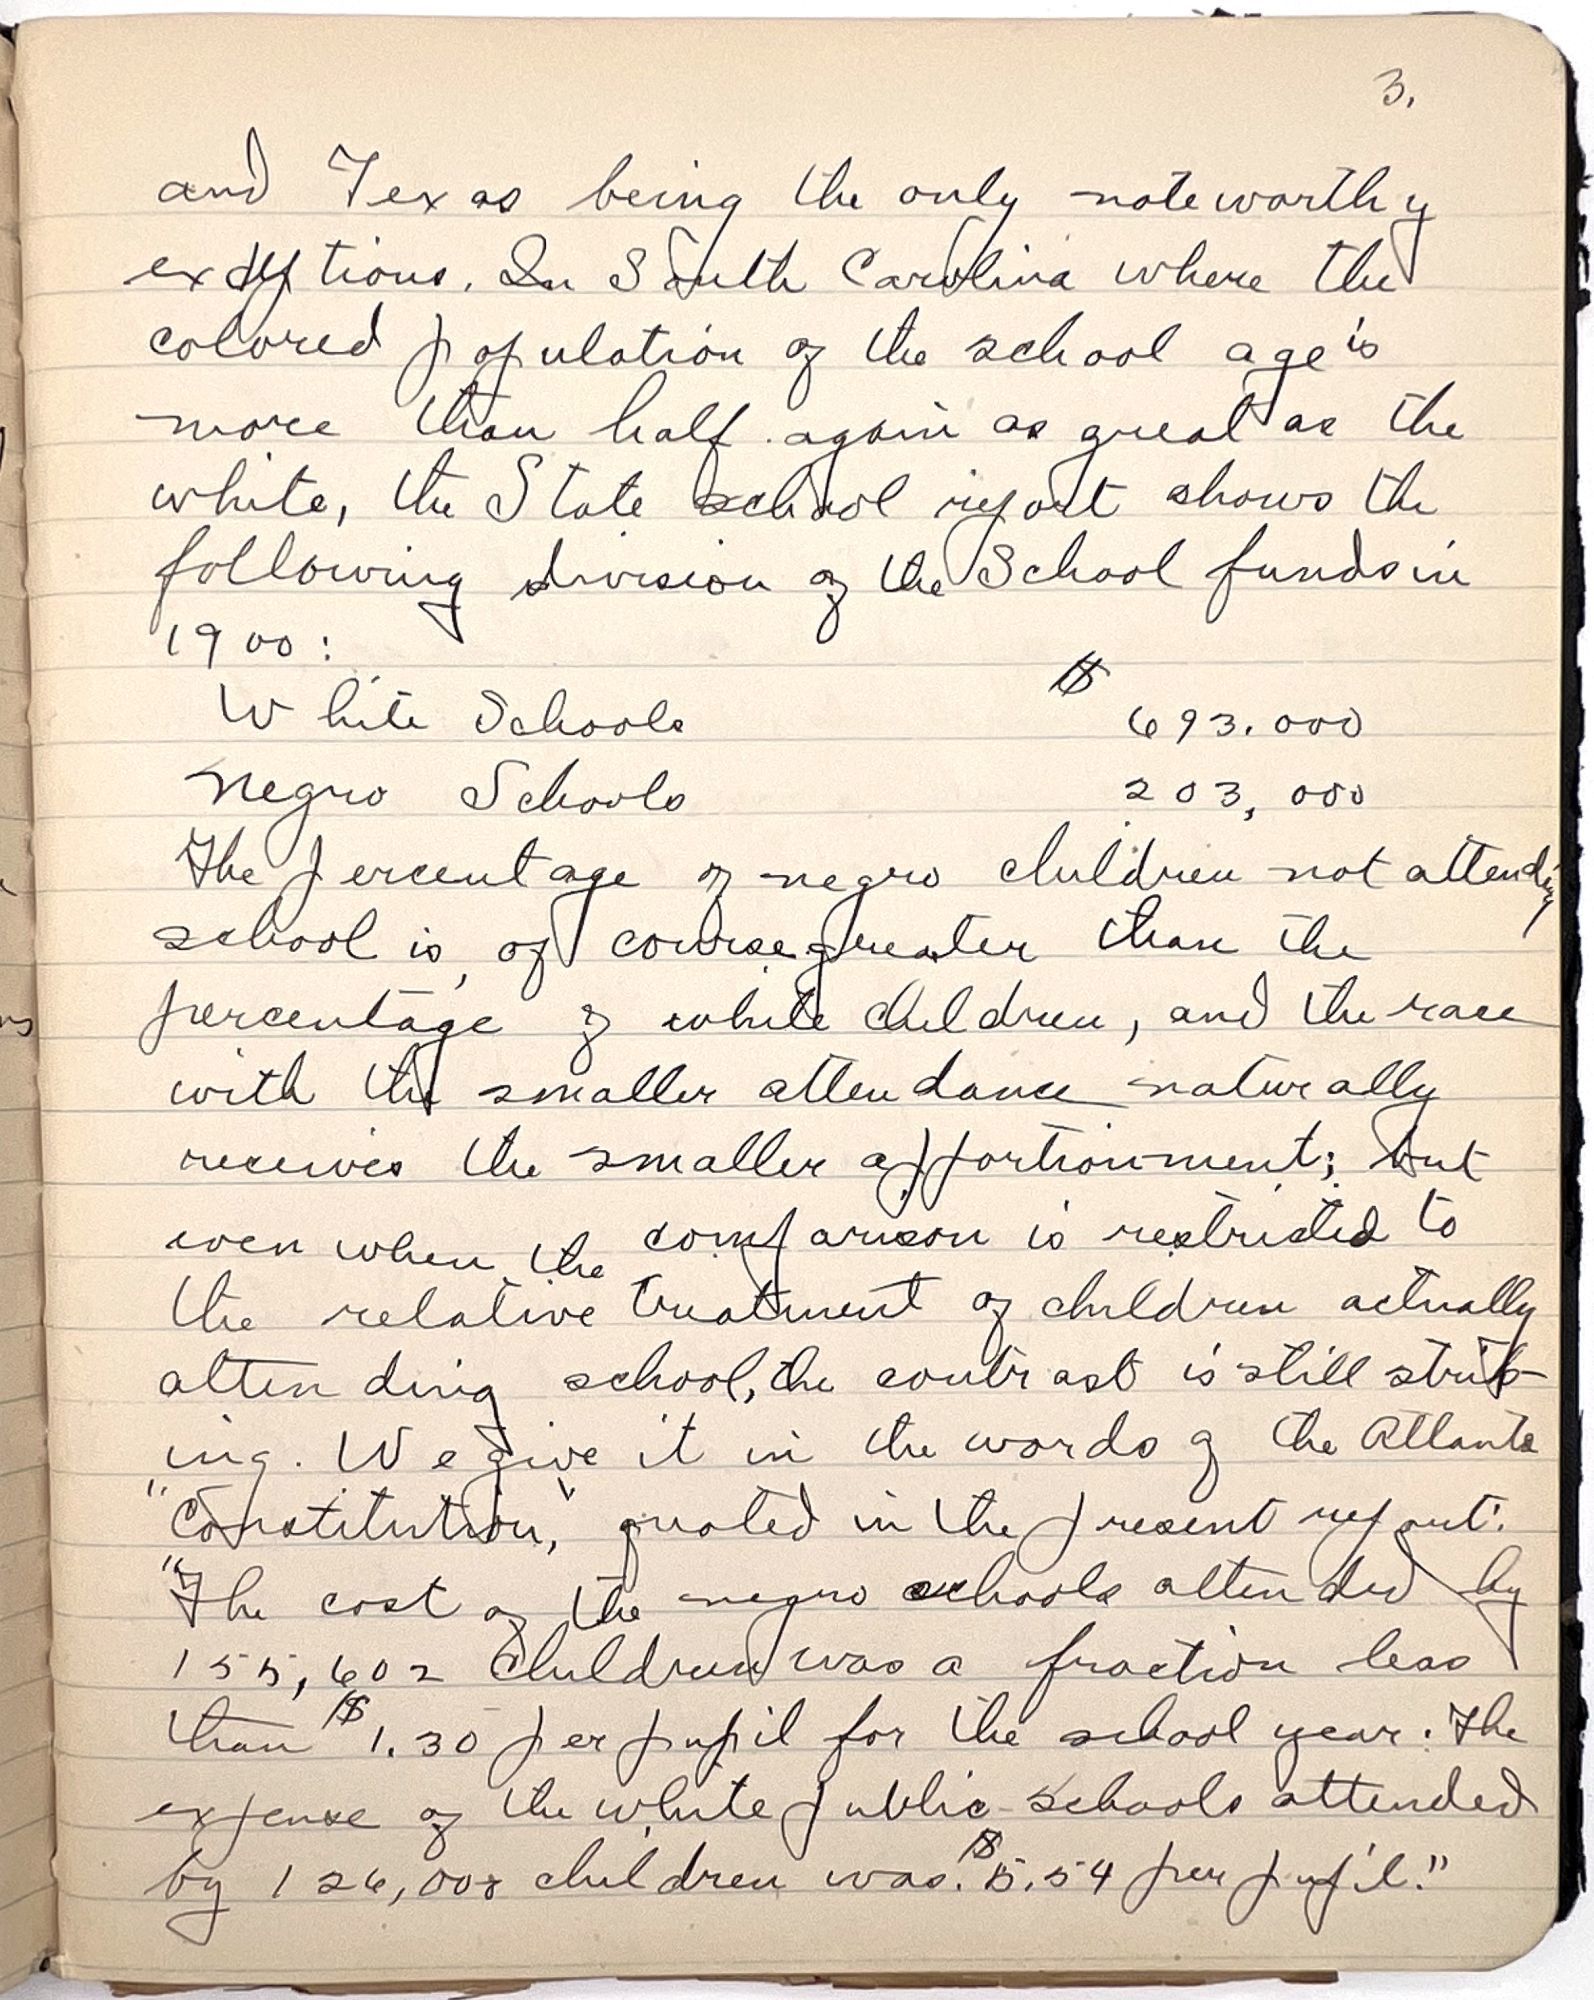 3.
and Texas being the only noteworthy
exceptions. In South Carolina where the
colored population of the school age is
more than half again as great as the
white, the State school report shows the
following division of the School funds in
1900:
$
White Schools 693.000
Negro Schools 203,000
The percentage of negro children not attending
school is, of course greater than the
percentage of white children, and the race
with the smaller attendance naturally
receives the smaller apportionment; but
even when the comparison is restricted to
the relative treatment of children actually
attending school, the contrast is still strik-
ing. We give it in the words of the Atlanta
"Constitution," quoted in the present report:
"The cost of the negro schools attended by
155,602 children was a fraction less
than $1.30 per pupil for the school year. The
expense of the white public schools attended
by children was $5.54 per pupil."